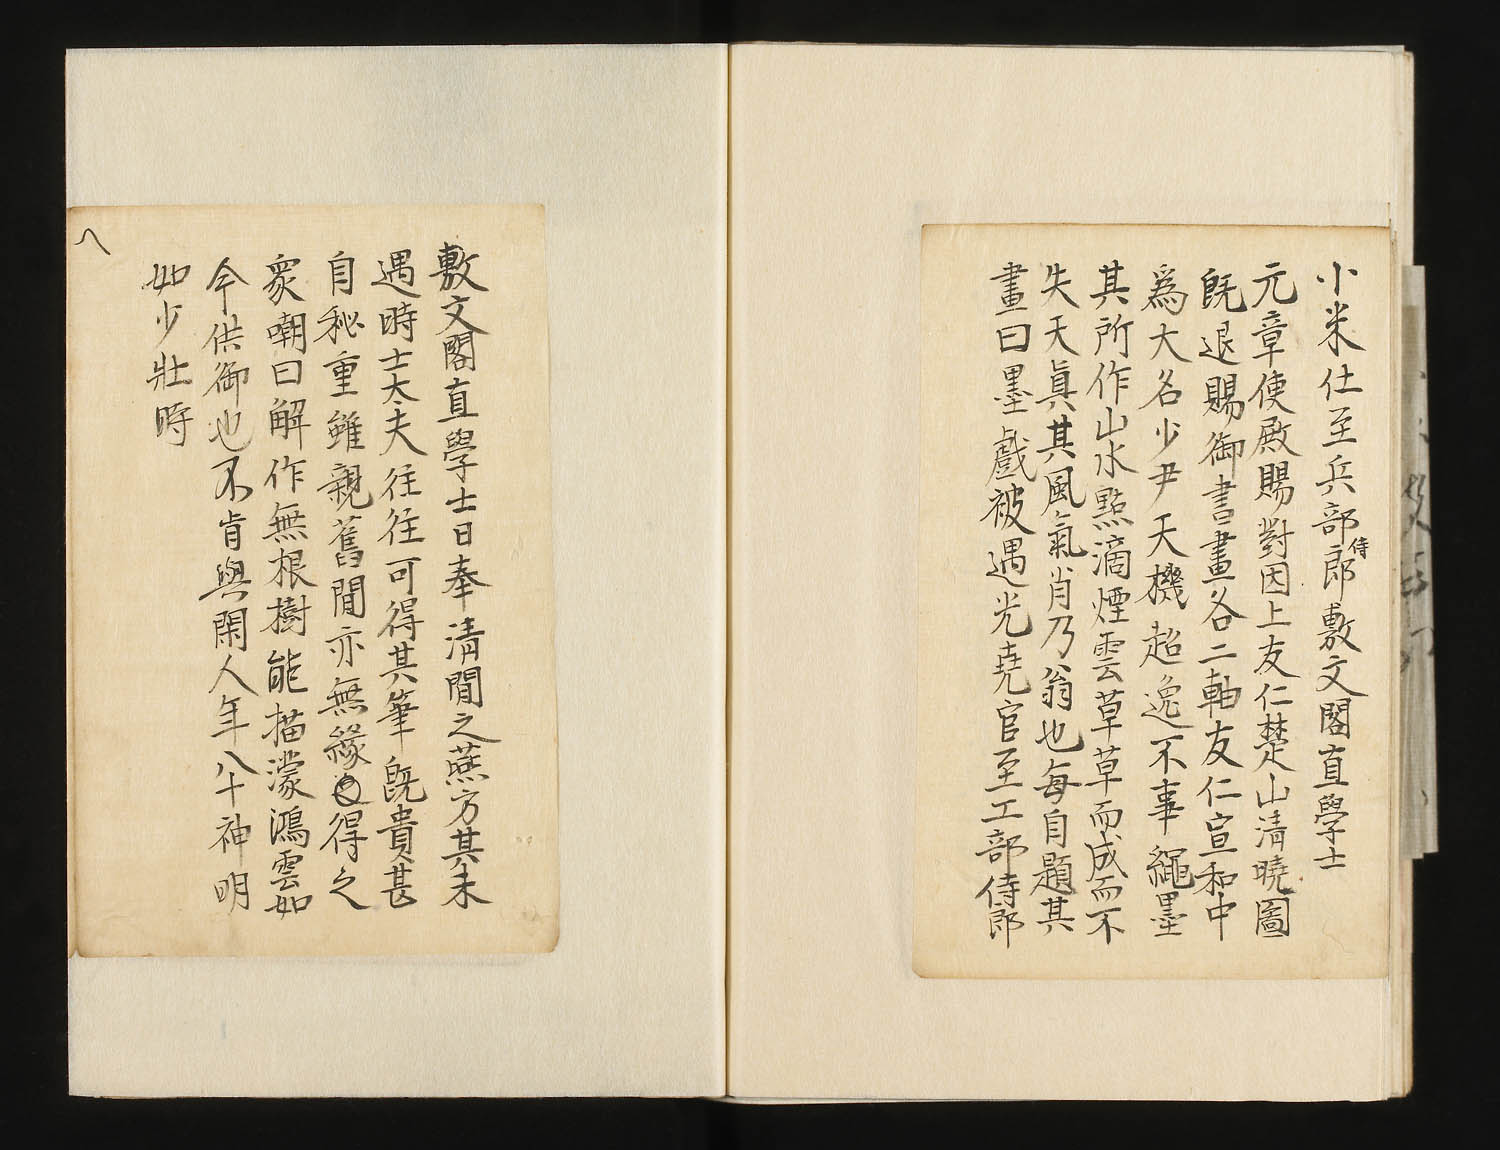 小米仕至兵部侍郎敷文閣直學士
元章使殿賜對因上友仁楚山清曉圖
既退賜御書畫各二軸友仁宣和中
爲大名少尹天機超逸不事繩墨
其所作山水點滴煙雲草草而成而不
失天眞其風氣肖乃翁也每自題其
畫曰墨戲被遇光堯官至工部侍郎
敷文閣直學士日奉清閒之燕方其未
遇時士大夫往往可得其筆既貴甚
自秘重雖親舊間亦無緣得之
衆嘲曰解作無根樹能描濛鴻雲如
今供御也不肯與閑人年八十神明
如少壯時